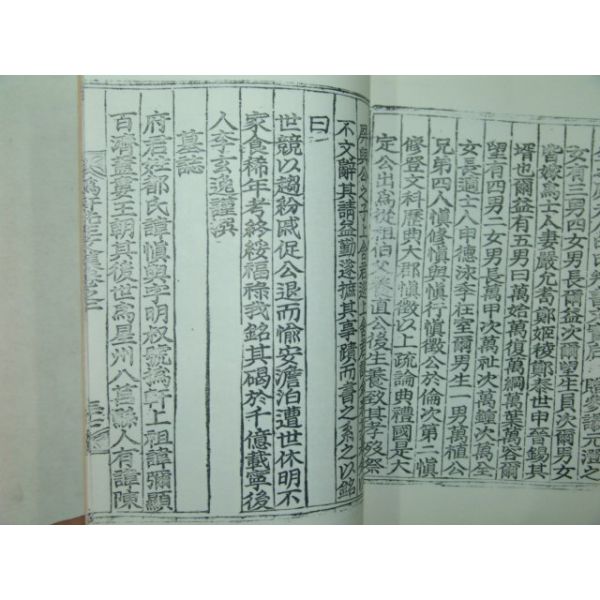 女有三男四女男長爾益次爾望生員次爾男女
皆嫁爲士人妻嚴允喬鄭姬稜鄭泰世申晉錫其
壻也爾益有五男曰萬始萬復萬綱萬葉萬容爾
望有四男二女男長萬甲次萬社次萬鍾次萬全
女長適士人申德洙季在室爾男生一男萬植公
兄弟四人愼修愼與愼行愼徵公於倫次第一愼
修登文科歷典大郡愼徵以上疏論典禮國是大
定公出爲從祖伯父 直公後生養致其孝歿祭
不文辭其請益勤遂摭其事蹟而書之系之以銘
曰
世競以趨粉戚促公退而愉安澹泊遭世休明不
家食稀年考終綏福祿我銘其碣於千億載寧後
人李玄逸謹撰
墓誌
府君姓都氏諱愼與字明叔號爲軒上祖諱彌顯
百濟盖婁王朝其後世爲星州八莒縣人有諱陳